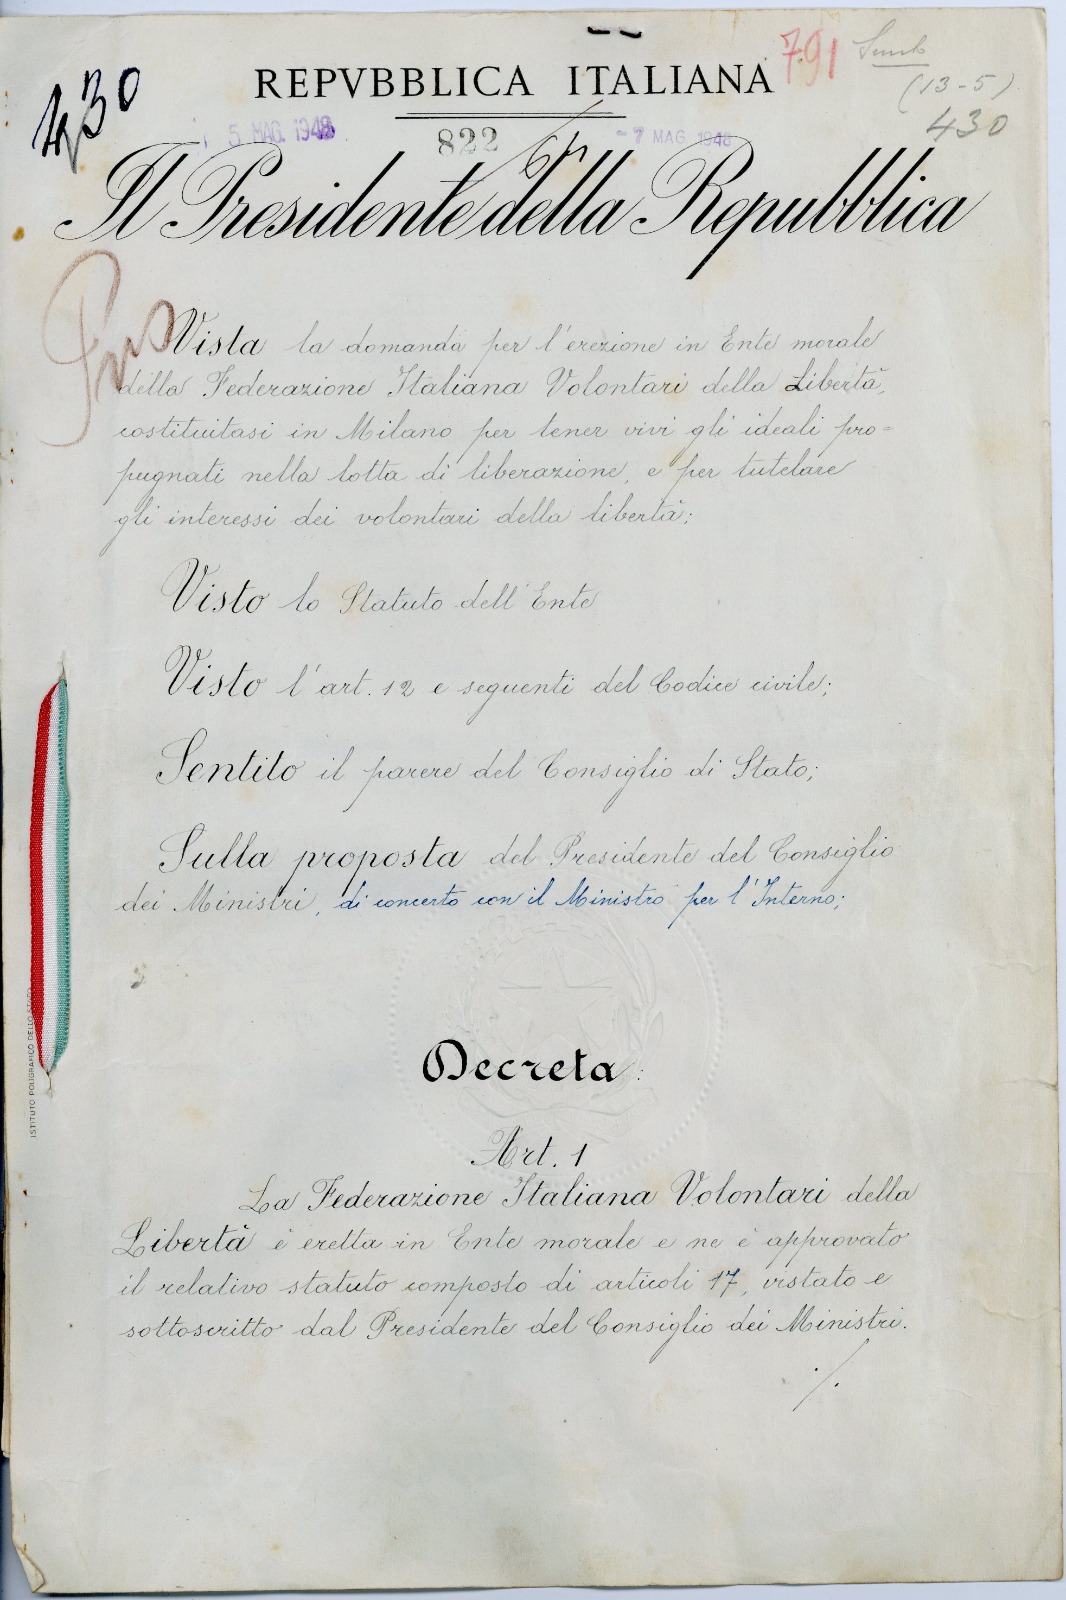 791
430
REPVBBLICA ITALIANA
(13-5)
5 MAG. 1948
822
-7 MAG. 1948
430
Il Presidente della Repubblica
Vista la domanda per l'erezione in Ente morale
della Federazione Italiana Volontari della Libertà,
costituitasi in Milano per tener vivi gli ideali pro=
pugnati nella lotta di liberazione, e per tutelare
gli interessi dei volontari della libertà;
Visto lo Statuto dell'Ente
Visto l'art. 12 e seguenti del Codice civile;
Sentito il parere del Consiglio di Stato;
Sulla proposta del Presidente del Consiglio
dei Ministri, di concerto con il Ministro per l'Interno;
Decreta:
Art. 1
La Federazione Italiana Volontari della
Libertà è eretta in Ente morale e ne è approvato
il relativo statuto composto di articoli 17, vistato e
sottoscritto dal Presidente del Consiglio dei Ministri.
./.
ISTITUTO POLIGRAFICO DELLO STATO